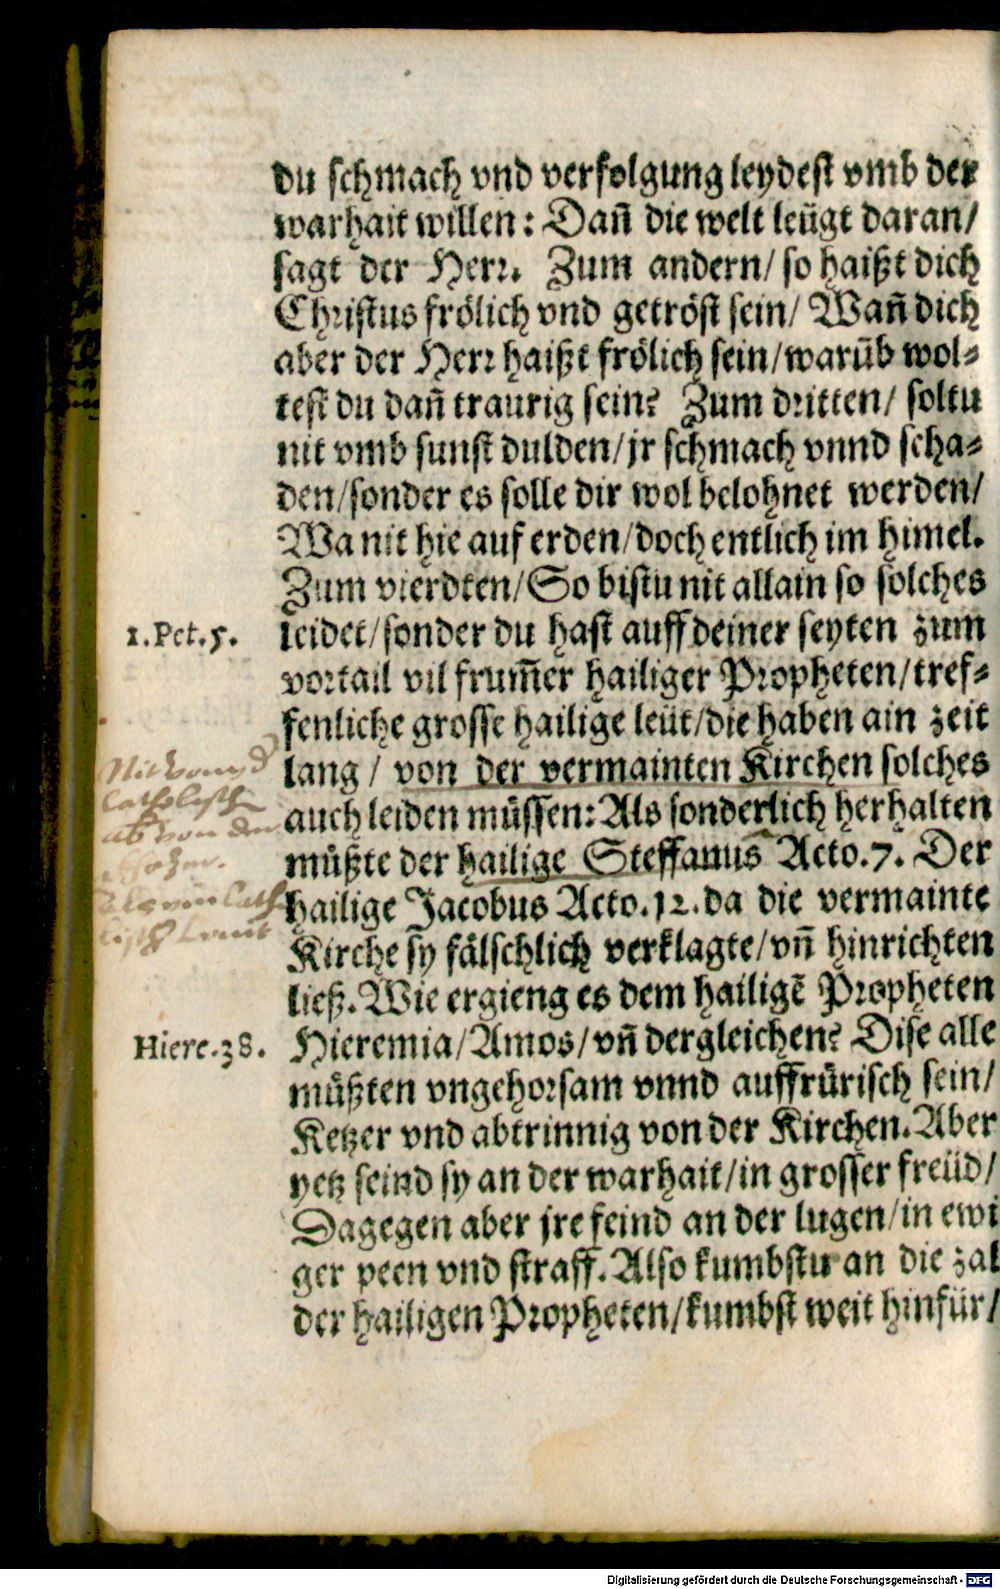 du schmach vnd verfolgung leydest vmb der
warhait willen: Dañ die welt leügt daran/
sagt der Herr. Zum andern/ so haißt dich
Christus frölich vnd getröst sein/ Wañ dich
aber der Herr haißt frölich sein/warūb wol⸗
test du dañ traurig sein? Zum dritten/ soltu
nit vmb sunst dulden/jr schmach vnnd scha⸗
den/sonder es solle dir wol belohnet werden/
Wa nit hie auf erden/doch entlich im himel.
Zum vierdten/So bistu nit allain so solches
1.Pet.5.
leidet/sonder du hast auff deiner seyten zum
vortail vil frum̃er hailiger Propheten/tref⸗
fenliche grosse hailige leüt/die haben ain zeit
lang / von der vermainten Kirchen solches
auch leiden müssen: Als sonderlich herhalten
müßte der hailige Steffanus Acto.7. Der
hailige Jacobus Acto.12.da die vermainte
Kirche sy fälschlich verklagte/vñ hinrichten
ließ. Wie ergieng es dem hailigē Propheten
Hiere.38.
Hieremia/Amos/vñ dergleichen? Dise alle
müßten vngehorsam vnnd auffrürisch sein/
Ketzer vnd abtrinnig von der Kirchen. Aber
yetz seind sy an der warhait/in grosser freüd/
Dagegen aber jre feind an der lugen/in ewi
ger peen vnd straff. Also kumbstu an die zal
der hailigen Propheten/kumbst weit hinfür/
Digitalisierung gefördert durch die Deutsche Forschungsgemeinschaft - DFG